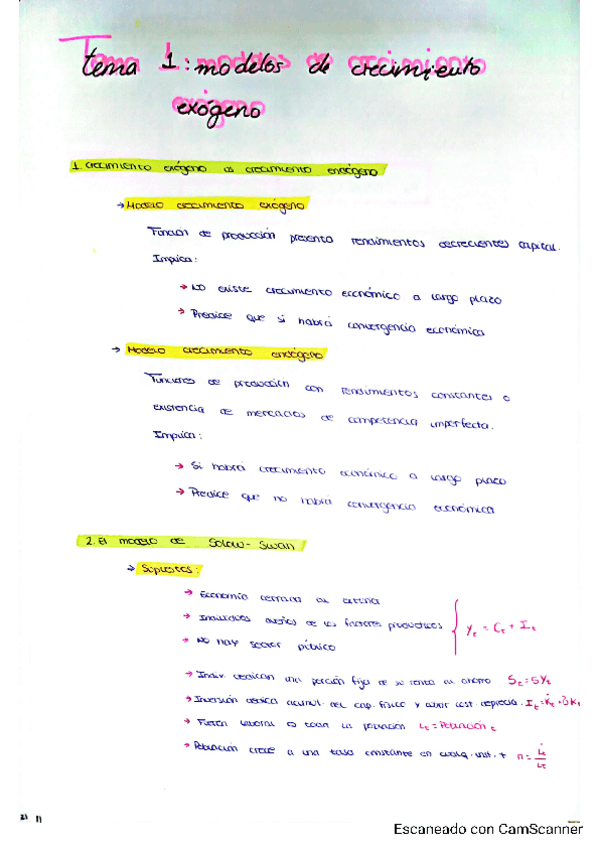 Tema 1: modelos de crecimiento
exógeno
1. crecimiento exógeno vs crecimiento endógeno
→ Modelo crecimiento exógeno
Función de producción presenta rendimientos decrecientes capital.
Implica:
→ NO existe crecimiento económico a largo plazo
→ Predice que si habrá convergencia económica
→ Modelo crecimiento endógeno
Funciones de producción con rendimientos constantes o
existencia de mercados de competencia imperfecta.
Implica:
→ Si habrá crecimiento económico a largo plazo
→ Predice que no habrá convergencia económica
2. El modelo de Solow-Swan
→ Supuestos:
→ Economía cerrada al exterior
→ Individuos dueños de los factores productivos
→ NO hay sector público
Yt = Ct + It
→ Indiv. dedican una porción fija de su renta al ahorro St = sYt
→ Inversión dedica acumul. del cap. físico y cubrir cost. deprecia. It = K̇t +
→ Fuerza laboral es toda la población Lt = Población t
→ Población crece a una tasa constante en cualq. inst. t n = L̇t/Lt
Escaneado con CamScanner